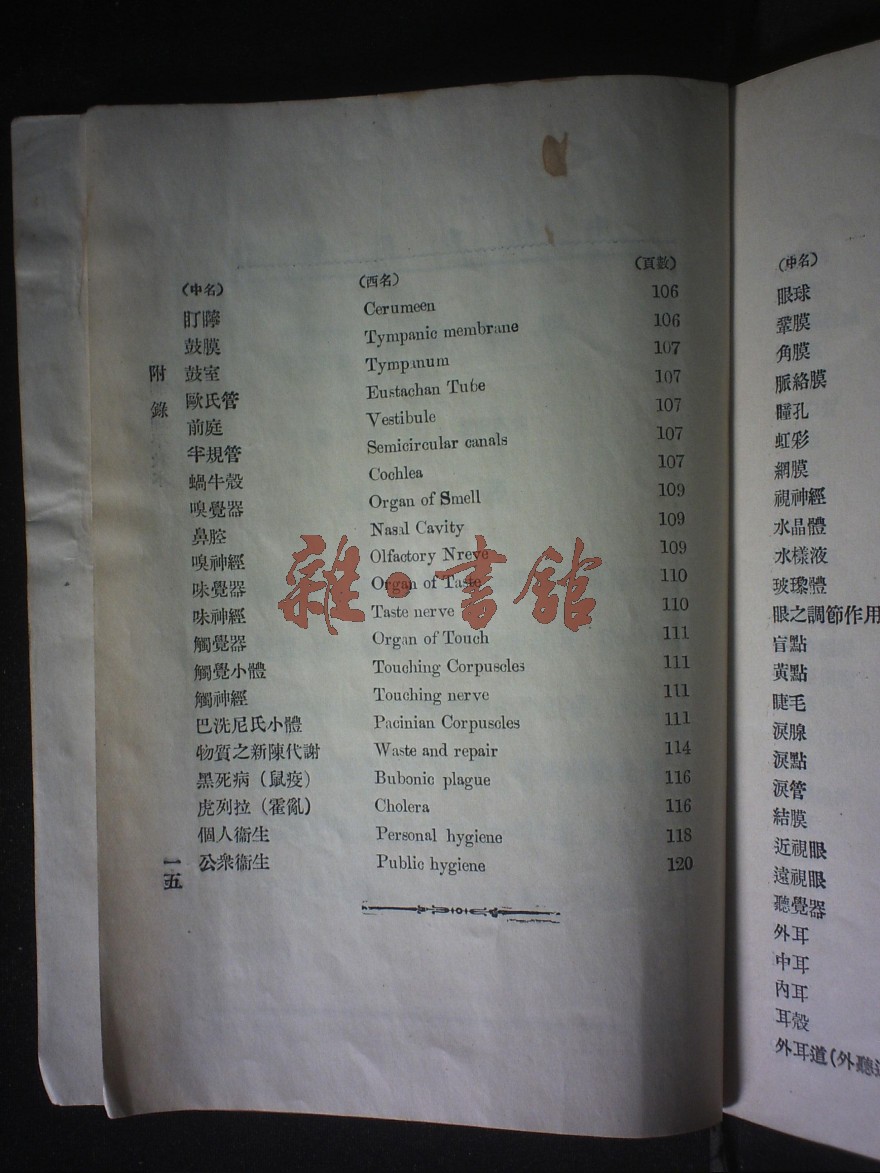 (中名) (西名) (頁數)
盯聹 Cerumeen 106
鼓膜 Tympanic membrane 106
鼓室 Tympanum 107
歐氏管 Eustachan Tube 107
前庭 Vestibule 107
半規管 Semicircular canals 107
蝸牛殼 Cochlea 107
嗅覺器 Organ of Smell 109
鼻腔 Nasal Cavity 109
嗅神經 Olfactory Nreve 109
味覺器 Organ of Taste 110
味神經 Taste nerve 110
觸覺器 Organ of Touch 111
觸覺小體 Touching Corpuscles 111
觸神經 Touching nerve 111
巴洗尼氏小體 Pacinian Corpuscles 111
物質之新陳代謝 Waste and repair 114
黑死病(鼠疫) Bubonic plague 116
虎列拉(霍亂) Cholera 116
個人衞生 Personal hygiene 118
公衆衞生 Public hygiene 120
附錄
一五
雜·書館
(中名)
眼球
鞏膜
角膜
脈絡膜
瞳孔
虹彩
網膜
視神經
水晶體
水樣液
玻璃體
眼之調節作用
盲點
黃點
睫毛
淚腺
淚點
淚管
結膜
近視眼
遠視眼
聽覺器
外耳
中耳
內耳
耳殼
外耳道(外聽